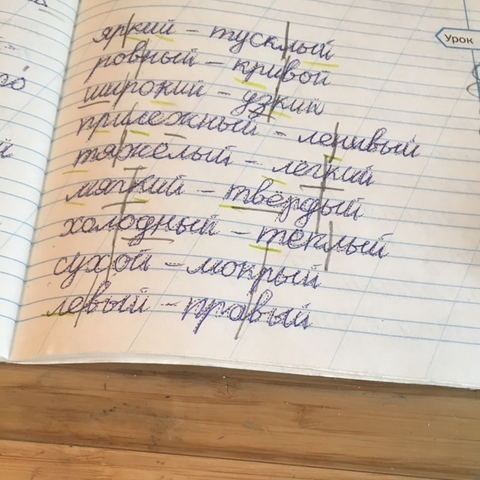 яркий – тусклый
Урок
ровный – кривой
широкий – узкий
прилежный – ленивый
тяжёлый – лёгкий
мягкий – твёрдый
холодный – тёплый
сухой – мокрый
левый – правый